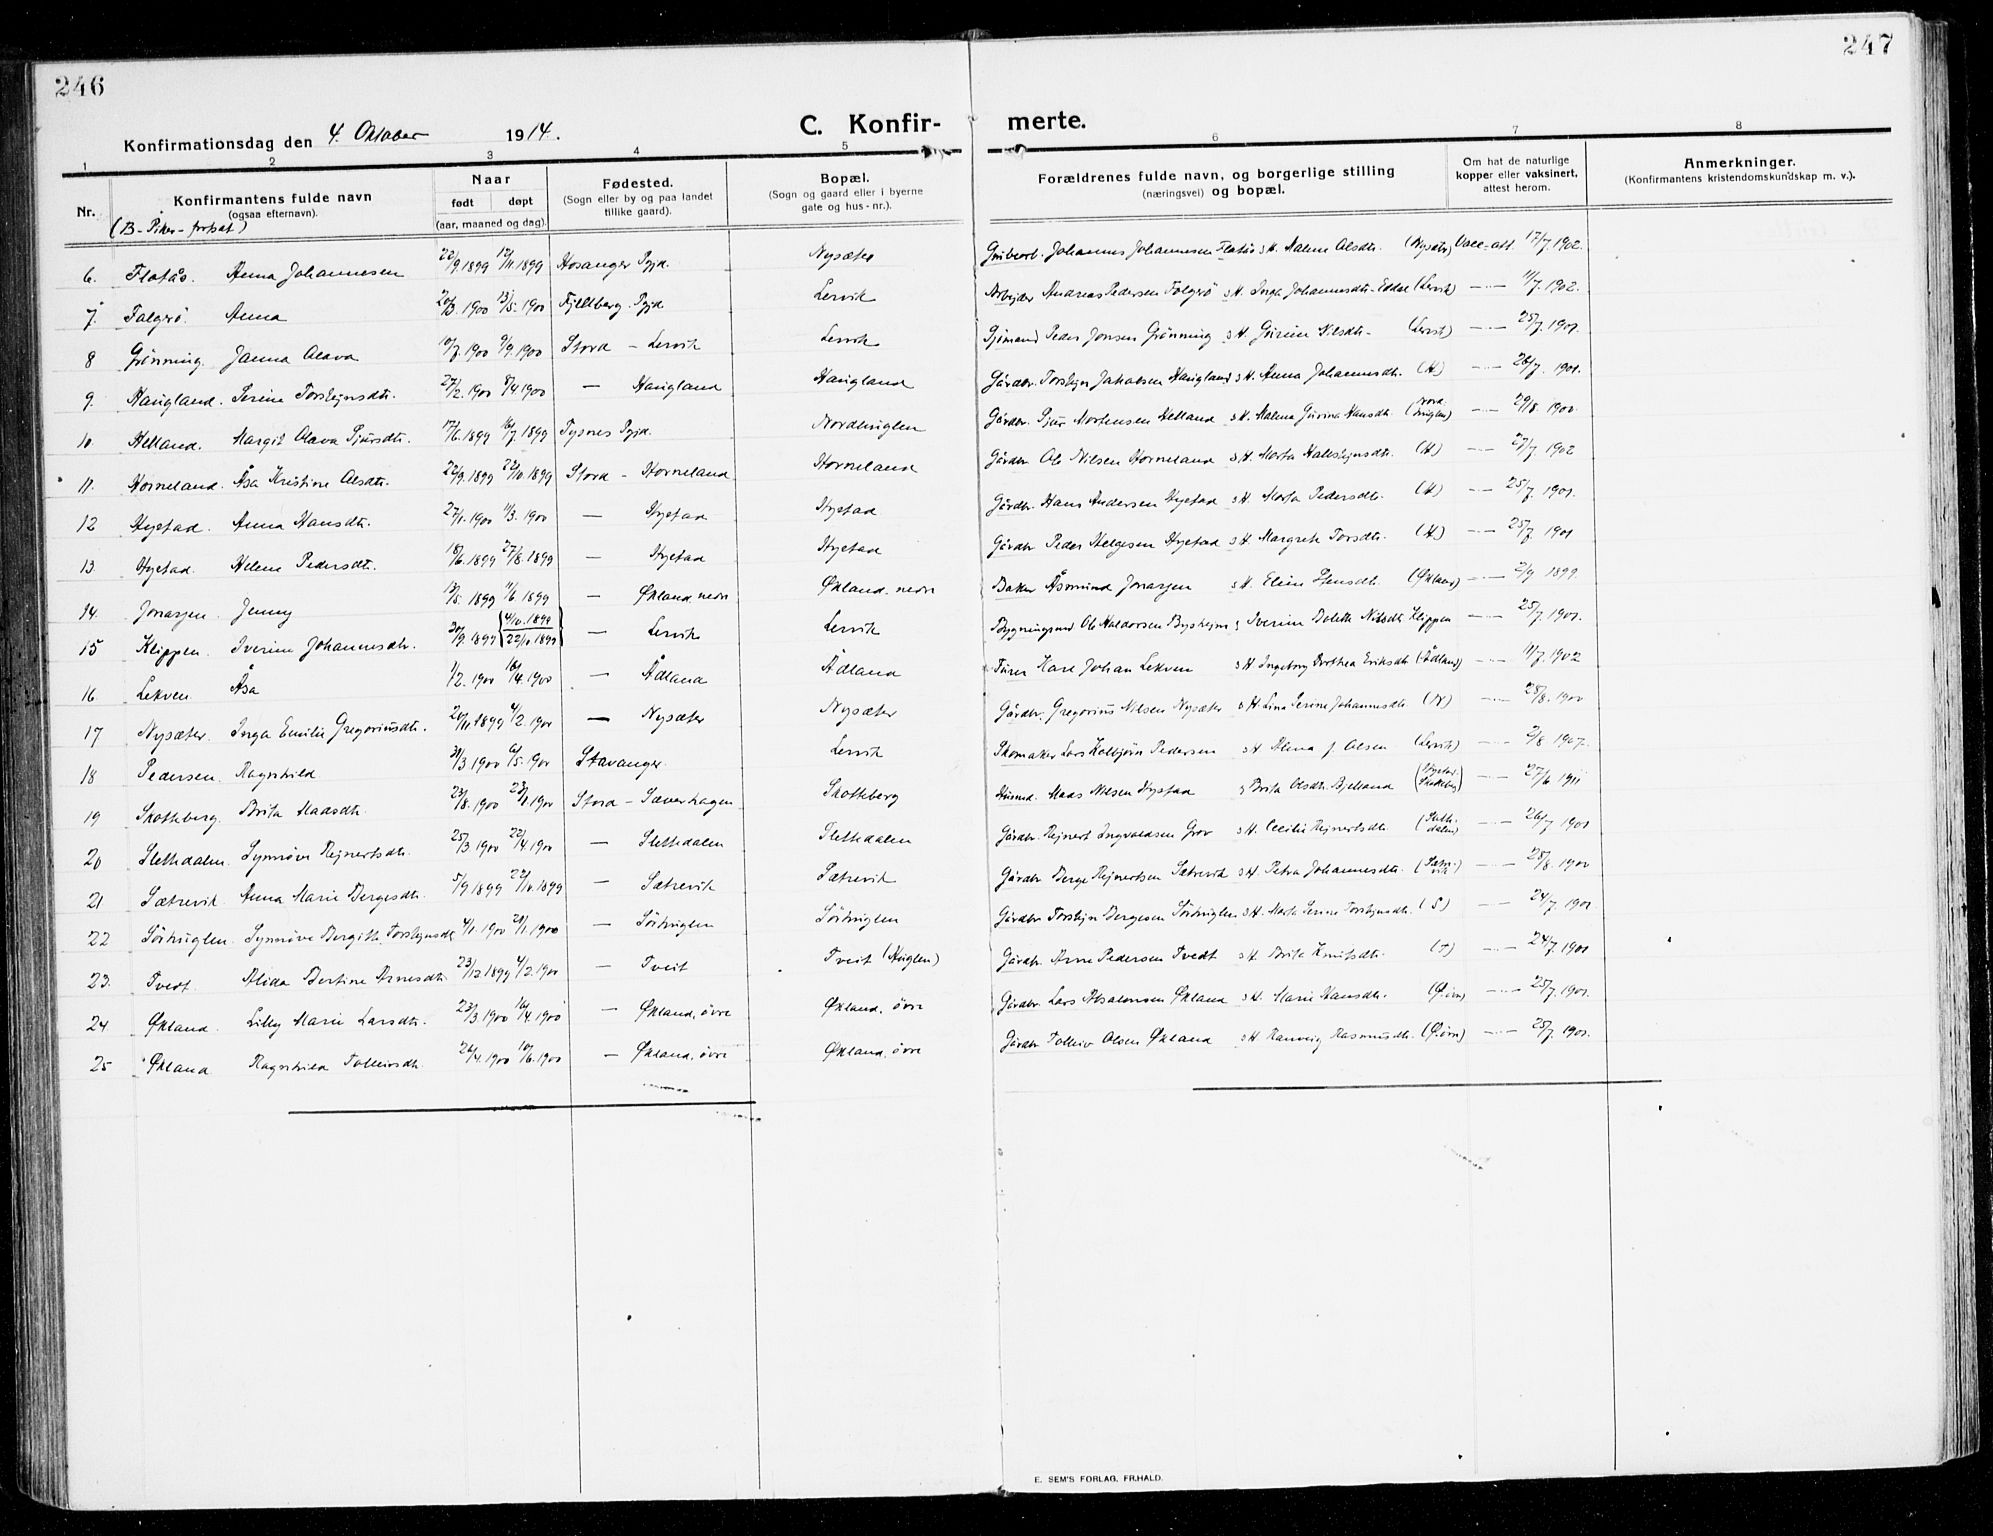 246
247
Konfirmationsdag den 4. Oktober 1914.
C. Konfir- merte.
1 2 3 4 5 6 7 8
Nr. Konfirmantens fulde navn (ogsaa efternavn). Naar født døpt (aar, maaned og dag). Fødested. (Sogn eller by og paa landet tillike gaard). Bopæl. (Sogn og gaard eller i byerne gate og hus-nr.). Forældrenes fulde navn, og borgerlige stilling (næringsvei) og bopæl. Om hat de naturlige kopper eller vaksinert, attest herom. Anmerkninger. (Konfirmantens kristendomskundskap m. v.).
(B-Piker-fortsat)
6. Flatås. Anna Johannesen 22/9.1899 12/11.1899 Hosanger Pgjd. Nysæter Johannes Johannesen Flatås s H. Malene Olsdtr. (Nysæter) Vacc-att. 17/7.1902.
7. Folgerö. Anna 20/3.1900 13/5.1900 Fjellberg Pgjd Lervik Arbejder Andreas Pedersen Folgerö s H. Inga Johannesdtr. Eddal (Lervik) —"— 11/7.1902.
8 Grönning. Janna Olava 10/7.1900 9/9.1900 Stord – Lervik Lervik Sjömand Peder Jonsen Grönning s H. Gurine Nilsdtr. (Lervik) —"— 25/7.1901.
9. Haugland. Serine Torstejnsdtr. 27/2.1900 8/4.1900 — Haugland Haugland Gårdbr. Torstejn Jakobsen Haugland s H. Anna Johannesdtr. (H) —"— 26/7.1901.
10. Helland. Margit Olava Sjursdtr. 17/6.1899 16/7.1899 Tysnes Pgjd. Nordhuglen Gårdbr. Sjur Mortensen Helland s H. Malena Gurina Hansdtr. (Nordhuglen) —"— 29/8.1900.
11. Horneland. Åsa Kristine Olsdtr. 22/9.1899 22/10.1899 Stord – Horneland Horneland Gårdbr. Ole Nilsen Horneland s H. Marta Hallstejnsdtr. (H) —"— 27/7.1902
12 Hystad. Anna Hansdtr. 27/1.1900 11/3.1900 — Hystad Hystad Gårdbr. Hans Andersen Hystad s H. Marta Pedersdtr. (H) —"— 25/7.1901.
13. Hystad. Helene Pedersdtr. 18/6.1899 27/8.1899 — Hystad Hystad Gårdbr. Peder Helgesen Hystad s H. Margrete Torsdtr. (H) —"— 25/7.1901
14. Jonassen. Jenny 13/5.1899 11/6.1899 — Økland, nedre Økland, nedre Baker Åsmund Jonassen s H. Eline (Økland) —"— 2/9 1899.
15 Klippen. Iverine Johannesdtr. 30/9.1899 {4/10.1899 22/10.1899} — Lervik Lervik Ole Haldorsen s Iverine Bolette Nilsdtr Klippen —"— 25/7.1901.
16 Lekven. Åsa 1/2.1900 16/4.1900 — Ådland Ådland Karl Johan Lekven s H Ingeborg Dorthea Eriksdtr. (Ådland) —"— 11/7.1902
17 Nysæter. Inga Emilie Gregoriusdtr. 20/11.1899 4/2.1900 — Nysæter Nysæter Gårdbr. Gregorius Nilsen Nysæter s H Lina Serine Johannesdtr. (N) —"— 28/8.1900
18 Pedersen. Ragnhild 31/3.1900 6/5.1900 Stavanger. Lervik Skomaker Lars Kolbjörn Pedersen s H Alma J. Olsen (Lervik) —"— 2/8.1907.
19 Skotteberg. Brita Maasdtr. 23/8.1900 23/11.1900 Stord – Sæverhagen Skotteberg Maas Nilsen Hystad s Brita Olsdtr. Bjelland (Hystad Skotteberg) —"— 27/6.1911
20 Slettedalen. Synnöve Rejnertsdtr. 25/3.1900 22/4.1900 — Slettedalen Slettedalen Gårdbr. Rejnert Ingvaldsen Grov s H. Cecilie Rejnertsdtr. (Slettedalen) —"— 26/7.1901
21 Sætrevik. Anna Marie Bergesdtr. 5/9.1899 22/10.1899 — Sætrevik Sætrevik Gårdbr Berge Rejnertsen Sætrevik s H. Petra Johannesdtr. (Sætrevik) —"— 28/8.1900
22 Sörhuglen. Synnöve Bergitte Torstejnsdtr 4/1.1900 21/1.1900 — Sörhuglen Sörhuglen Gårdbr Torstejn Bergesen Sörhuglen s H. Marta Serine Torstejnsdtr. (S) —"— 24/7.1901.
23. Tvedt. Alida Bertine Arnesdtr. 23/12.1899 4/2.1900 — Tveit Tveit (Huglen) Gårdbr. Arne Pedersen Tvedt s H. Brita Knutsdtr. (T) —"— 24/7.1901
24 Økland. Lilly Marie Larsdtr. 23/3.1900 16/4.1900 — Økland, övre Økland, övre Gårdbr. Lars Absalonsen Økland s H. Marie Hansdtr. (Ø.övr) —"— 25/7.1901.
25 Økland Ragnhild Tolleivsdtr. 26/4.1900 10/6.1900 — Økland, övre Økland, övre Gårdbr Tolleiv Olsen Økland s H Ranveig Rasmusdtr. (Ø.övr) —"— 25/7.1901.
E. SEM'S FORLAG, FR.HALD.